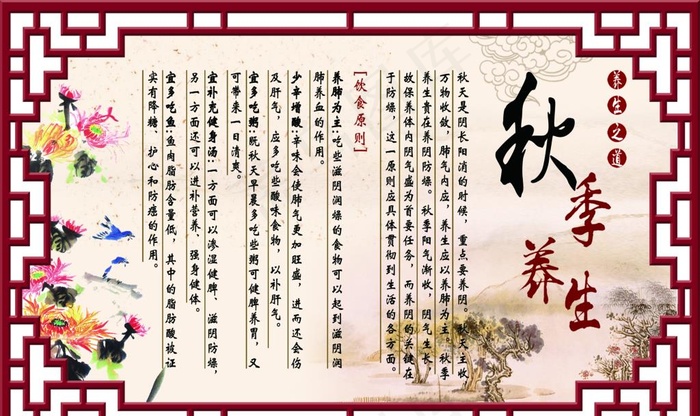 养生之道
秋季养生
秋天是阴长阳消的时候，重点要养阴。秋天主收，
万物收敛，肺气内应，养生应以养肺为主。秋季
养生贵在养阴防燥。秋季阳气渐收，阴气生长，
故保养体内阴气盛为首要任务，而养阴的关键在
于防燥，这一原则应具体贯彻到生活的各方面。
［饮食原则］
养肺为主:吃些滋阴润燥的食物可以起到滋阴润
肺养血的作用。
少辛增酸:辛味会使肺气更加旺盛，进而还会伤
及肝气，应多吃些酸味食物，以补肝气。
宜多吃粥:既秋天早晨多吃些粥可健脾养胃，又
可带来一日清爽。
宜补充健身汤:一方面可以渗湿健脾、滋阴防燥，
另一方面还可以进补营养、强身健体。
宜多吃鱼:鱼肉脂肪含量低，其中的脂肪酸被证
实有降糖、护心和防癌的作用。